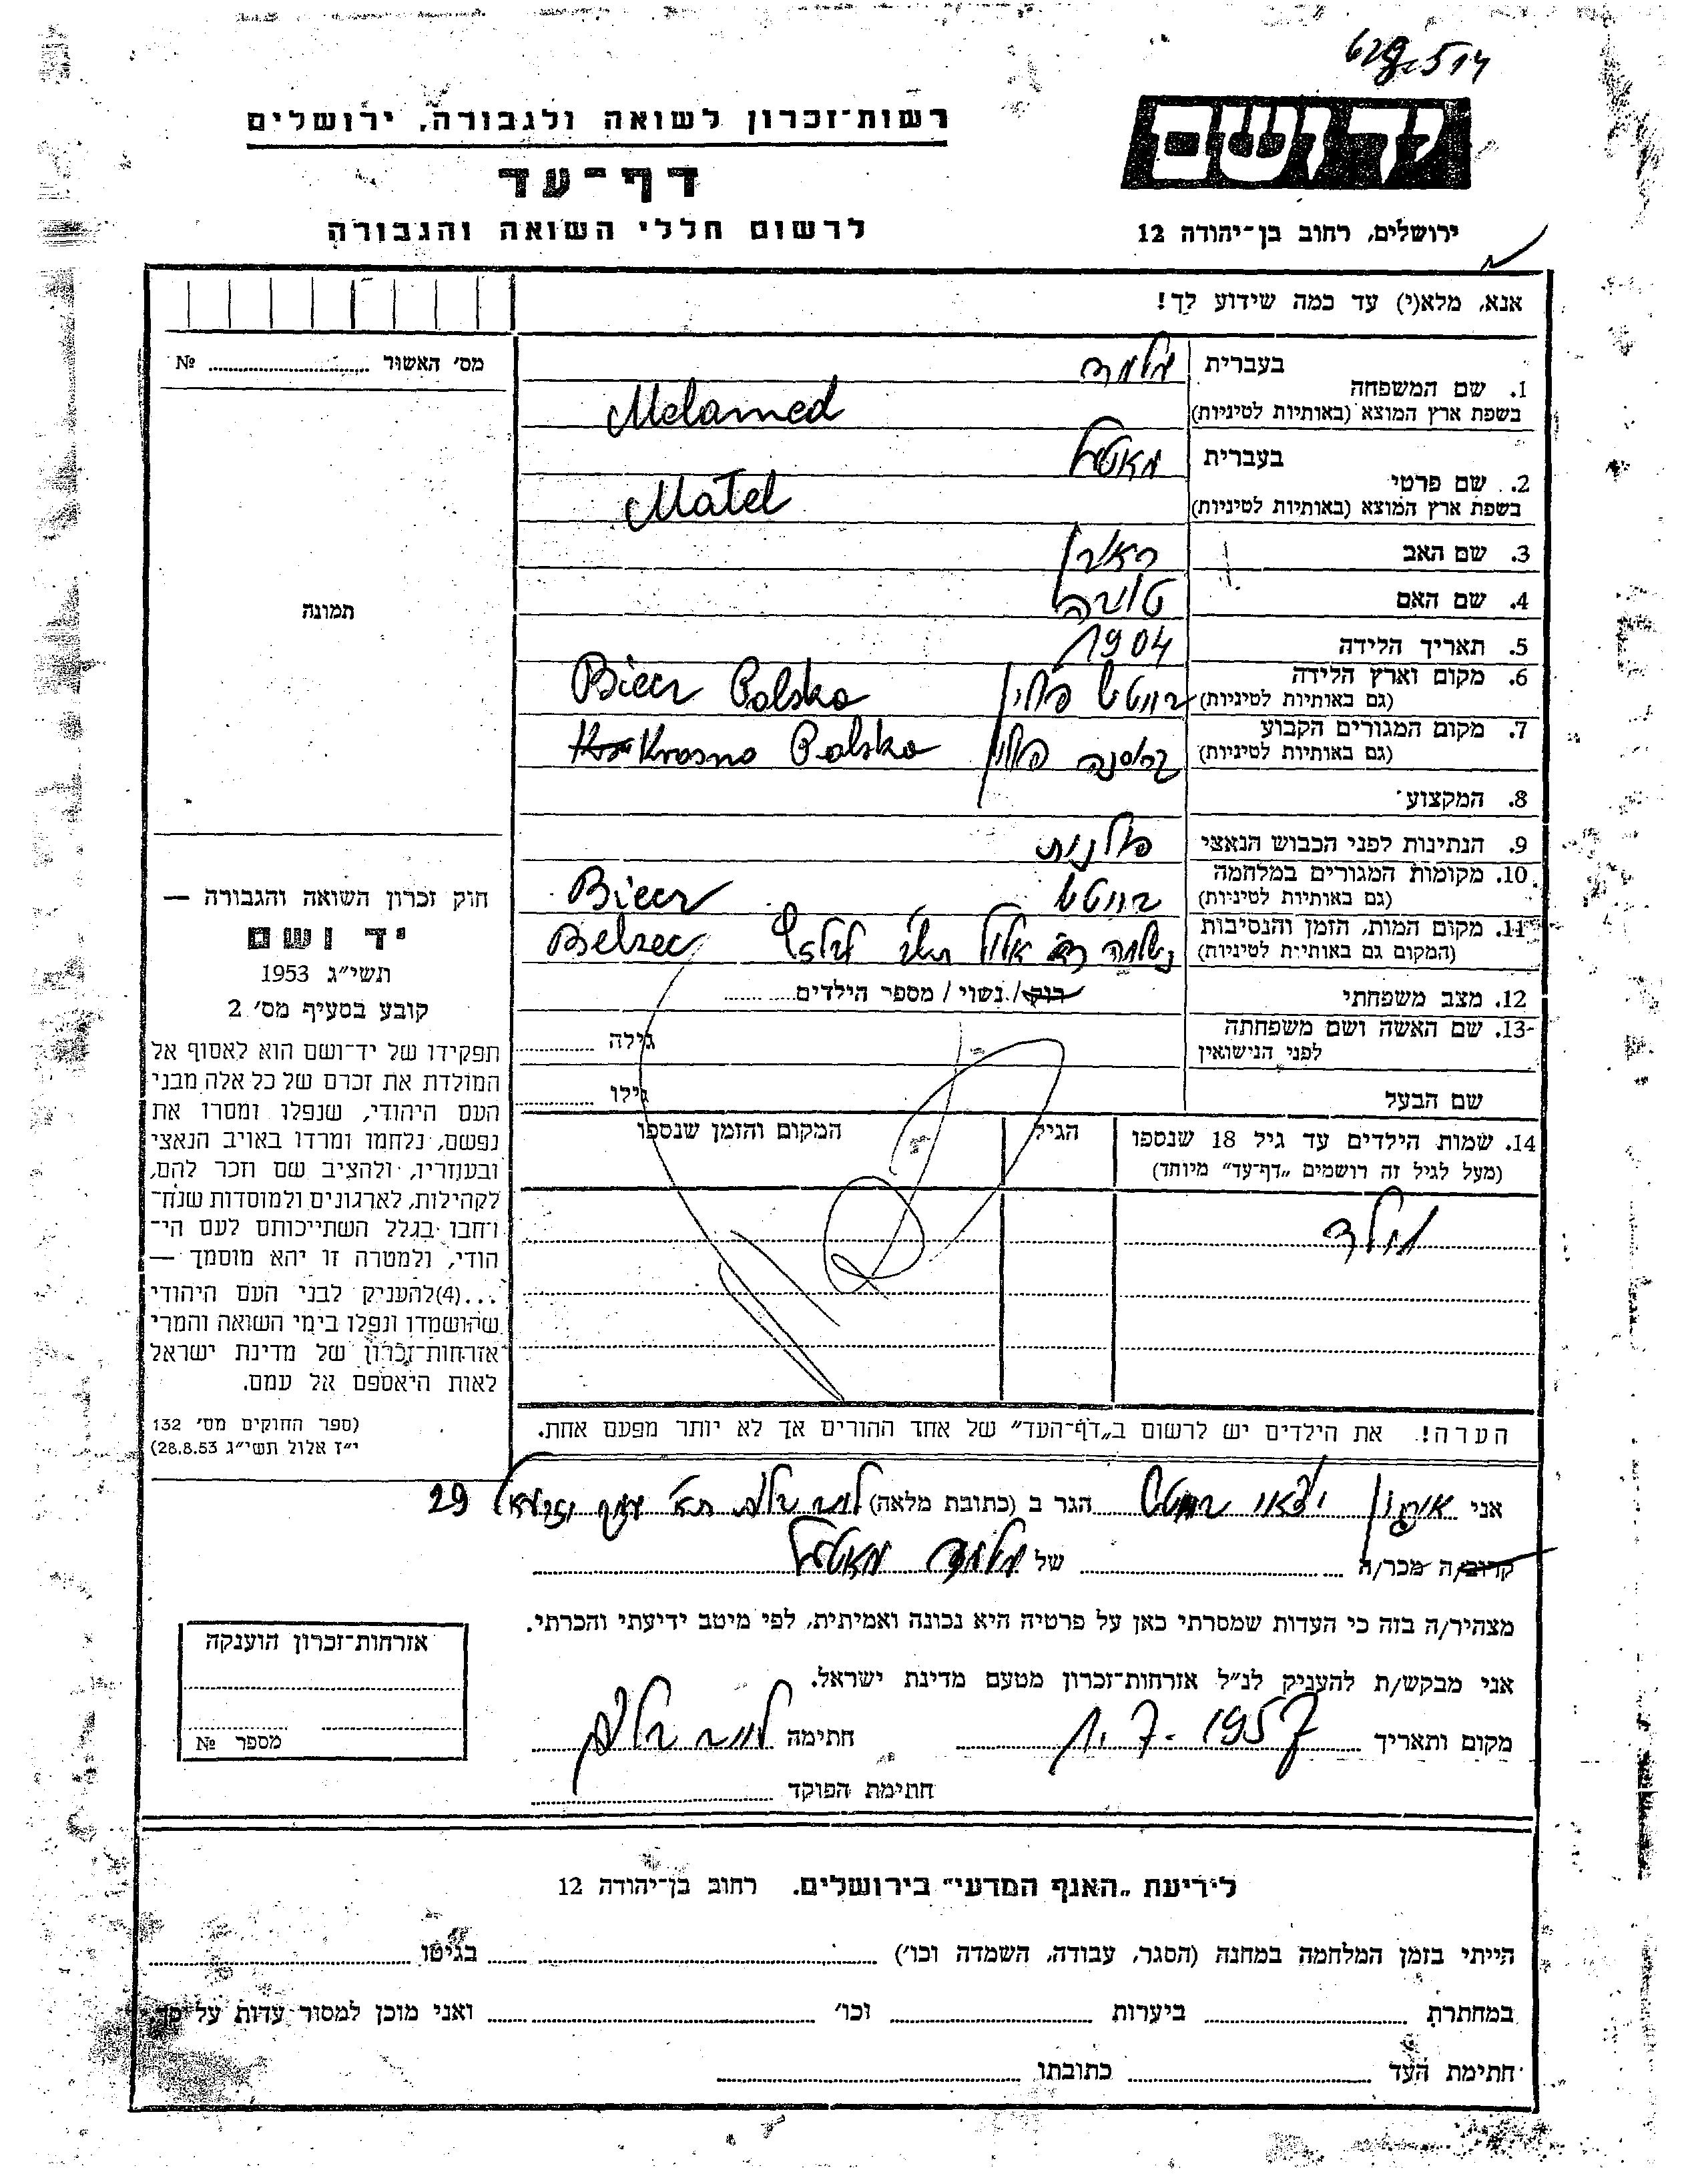 628.514
יד ושם
רשות־זכרון לשואה ולגבורה, ירושלים
דף־עד
לרשום חללי השואה והגבורה
ירושלים, רחוב בן־יהודה 12
אנא, מלא(י) עד כמה שידוע לך!
מס' האשור № 
1. שם המשפחה
בעברית מלמד
בשפת ארץ המוצא (באותיות לטיניות) Melamed
2. שם פרטי
בעברית מאטל
בשפת ארץ המוצא (באותיות לטיניות) Matel
3. שם האב
4. שם האם טויבה
5. תאריך הלידה 1904
6. מקום וארץ הלידה
(גם באותיות לטיניות) פולין Biecz Polska
7. מקום המגורים הקבוע
(גם באותיות לטיניות) קראסנה פולין Krosno Polska
8. המקצוע
9. הנתינות לפני הכבוש הנאצי פולנית
10. מקומות המגורים במלחמה
(גם באותיות לטיניות) Biecz
11. מקום המות, הזמן והנסיבות
(המקום גם באותיות לטיניות) נשלחה אלול תש"ב לבלזץ Belzec
12. מצב משפחתי רוק / נשוי / מספר הילדים
13. שם האשה ושם משפחתה
לפני הנישואין גילה
שם הבעל גילו
14. שמות הילדים עד גיל 18 שנספו
(מעל לגיל זה רושמים „דף־עד" מיוחד)
הגיל
המקום והזמן שנספו
וילד
הערה! את הילדים יש לרשום ב„דף־העד" של אחד ההורים אך לא יותר מפעם אחת.
תמונה
חוק זכרון השואה והגבורה —
יד ושם
תשי"ג 1953
קובע בסעיף מס' 2
תפקידו של יד־ושם הוא לאסוף אל
המולדת את זכרם של כל אלה מבני
העם היהודי, שנפלו ומסרו את
נפשם, נלחמו ומרדו באויב הנאצי
ובעוזריו, ולהציב שם וזכר להם,
לקהילות, לארגונים ולמוסדות שנח־
רבו בגלל השתייכותם לעם הי־
הודי, ולמטרה זו יהא מוסמך —
...(4)להעניק לבני העם היהודי
שהושמדו ונפלו בימי השואה והמרי
אזרחות־זכרון של מדינת ישראל
לאות היאספם אל עמם.
(ספר החוקים מס' 132
י"ז אלול תשי"ג 28.8.53)
אני ארגון יוצאי הגר ב (כתובת מלאה) 29
קרוב/ה מכר/ה של מלמד מאטל
מצהיר/ה בזה כי העדות שמסרתי כאן על פרטיה היא נכונה ואמיתית, לפי מיטב ידיעתי והכרתי.
אני מבקש/ת להעניק לנ"ל אזרחות־זכרון מטעם מדינת ישראל.
מקום ותאריך 1.7.1957 חתימה
חתימת הפוקד
אזרחות־זכרון הוענקה
מספר №
לידיעת „האגף המדעי" בירושלים. רחוב בן־יהודה 12
הייתי בזמן המלחמה במחנה (הסגר, עבודה, השמדה וכו') בגיטו
במחתרת ביערות וכו' ואני מוכן למסור עדות על כך.
חתימת העד כתובתו